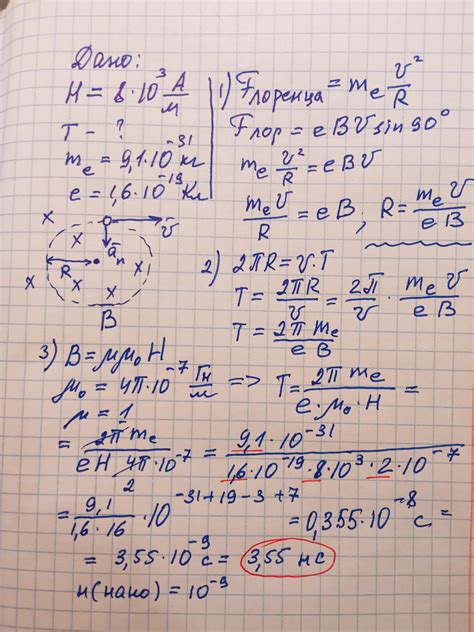 Дано:
H = 8·10³ А/м
T - ?
mₑ = 9,1·10⁻³¹ кг
e = 1,6·10⁻¹⁹ Кл
x x v̄
R āₙ x
x x x
B
1) Fлоренца = mₑ v²/R
Fлор = eBv sin 90°
mₑ v²/R = eBv
mₑv/R = eB, R = mₑv/eB
2) 2πR = v.T
T = 2πR/v = 2π/v · mₑv/eB
T = 2πmₑ/eB
3) B = μμ₀H
μ₀ = 4π·10⁻⁷ Гн/м => T = 2πmₑ/e·μ₀·H =
μ = 1
= 2πmₑ/eH 4π·10⁻⁷ 2 = 9,1·10⁻³¹/1,6·10⁻¹⁹·8·10³·2·10⁻⁷
= 9,1/1,6·16 · 10⁻³¹⁺¹⁹⁻³⁺⁷ = 0,355·10⁻⁸ с =
= 3,55·10⁻⁹ с = 3,55 нс
н(нано) = 10⁻⁹